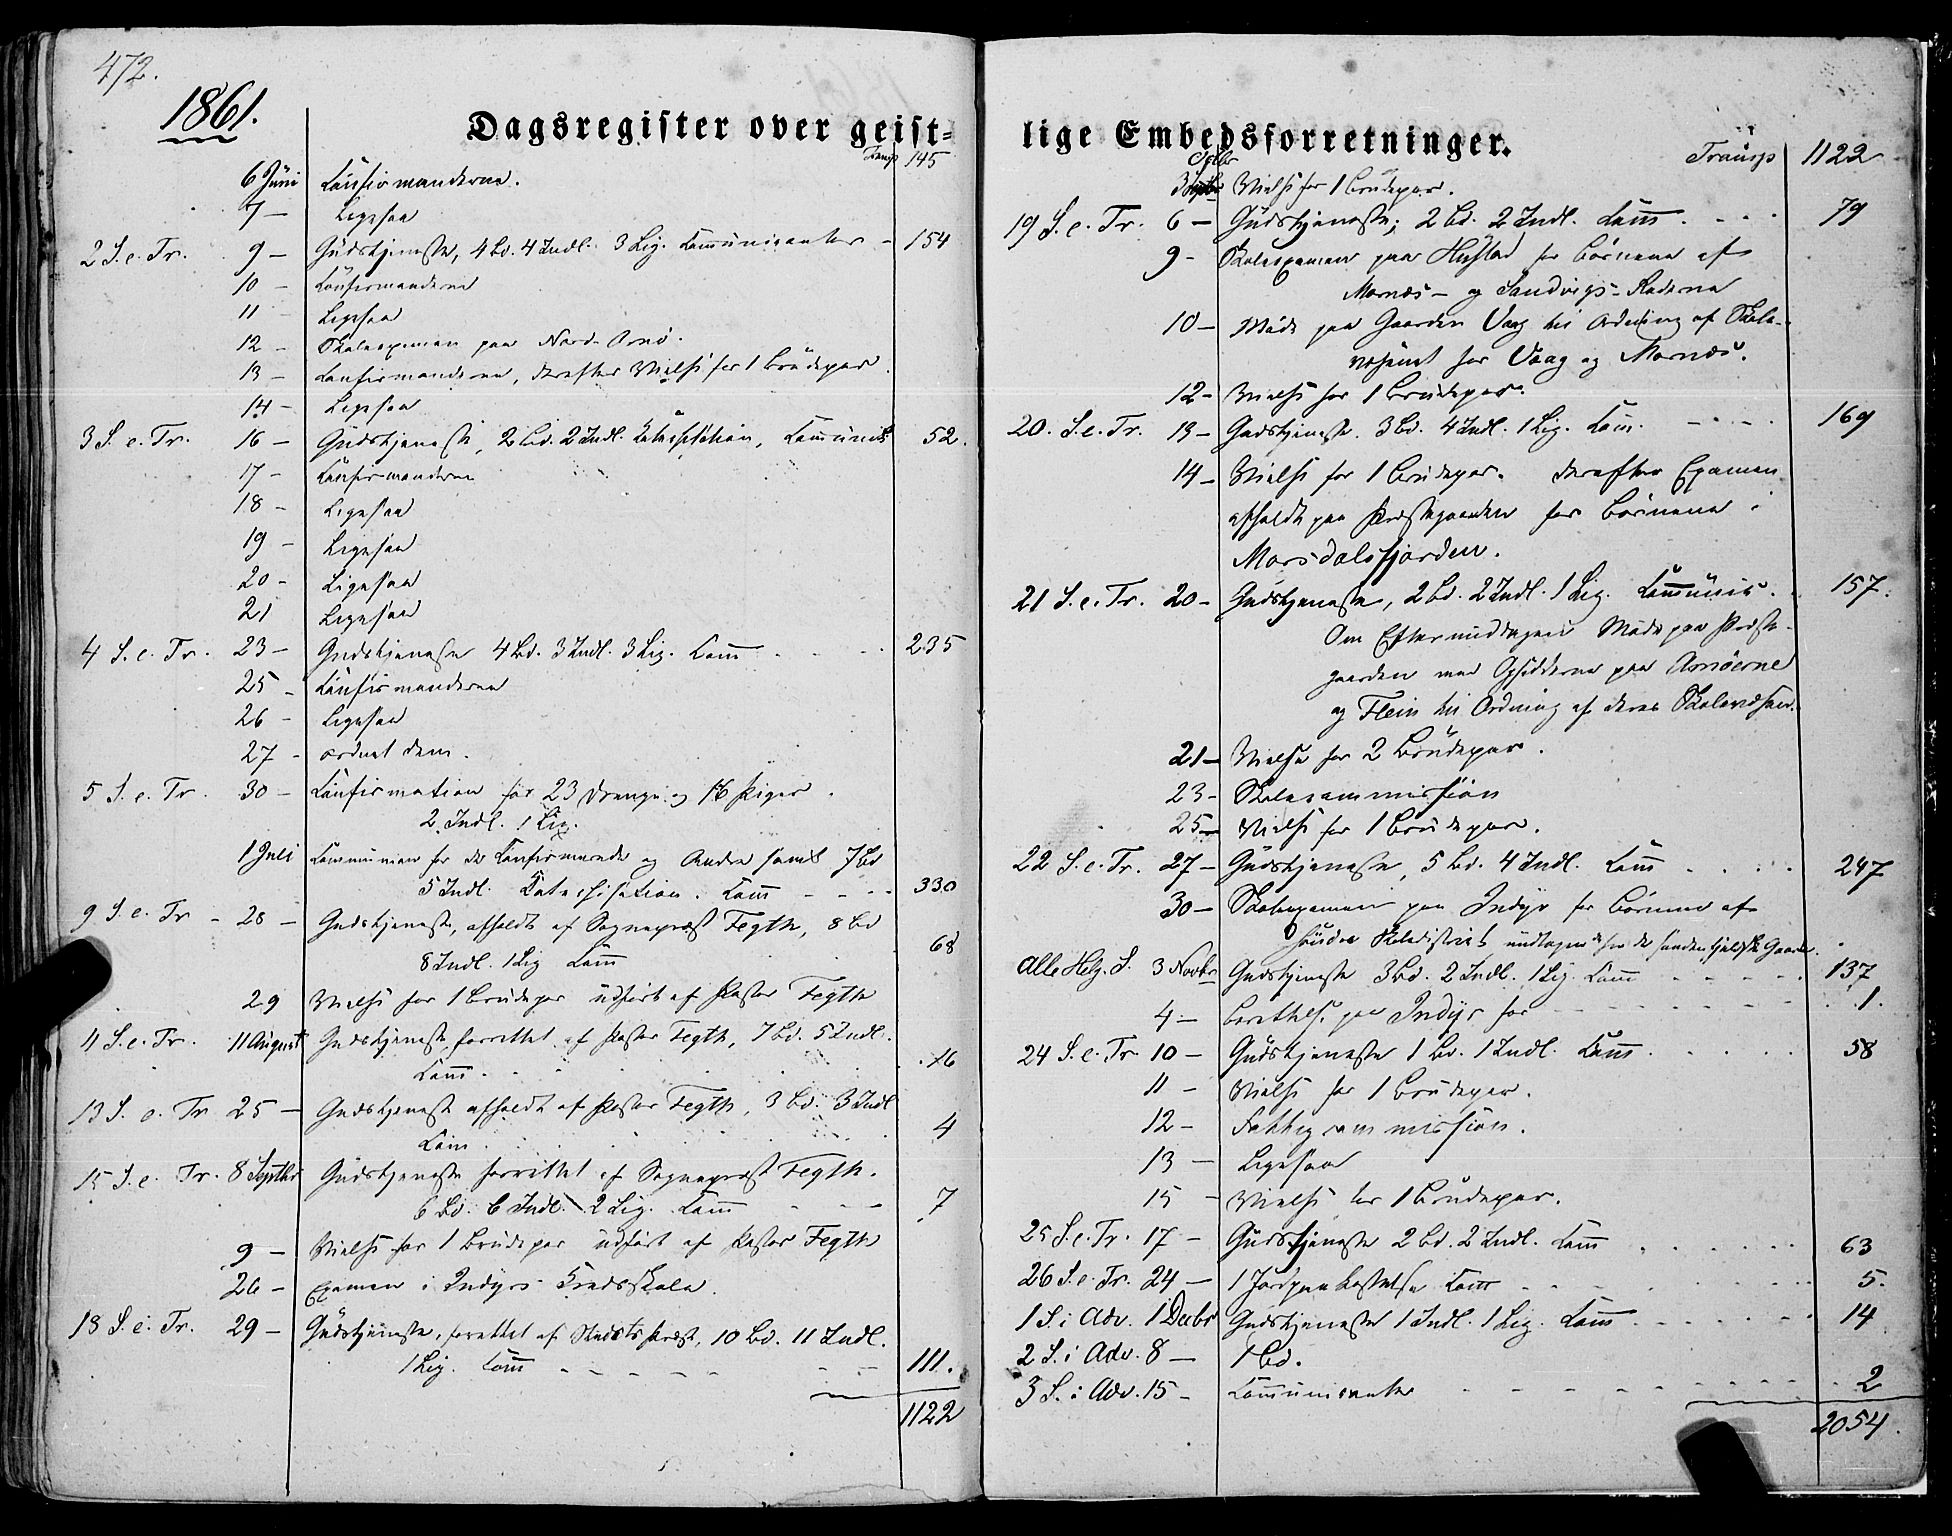 472.
1861.
Dagsregister over geist-
Transp 145
6 Juni Confirmanderne.
7 — Ligesaa
2 S. e. Tr. 9 — Gudstjeneste, 4 Bd. 4 Indl. 3 Lig. Communicanter - 154
10 - Confirmanderne
11 - Ligesaa
12 - Skoleexamen paa Nord-Arnø.
13 - Confirmanderne, derefter Vielse for 1 Brudepar.
14 - Ligesaa
3 S. e. Tr. 16 - Gudstjeneste, 2 Bd. 2 Indl. Catechisation, Communik 52.
17 - Confirmanderne
18 - Ligesaa
19 - Ligesaa
20 - Ligesaa
21 Ligesaa
4 S. e. Tr. 23 - Gudstjeneste 4 Bd. 3 Indl. 3 Lig. Comm - - - 235
25 - Confirmanderne
26 - Ligesaa
27 - ordnet dem.
5 S. e. Tr. 30 - Confirmation for 23 Drenge og 16 Piger.
2 Indl. 1 Lig.
1 Juli Communion for de Confirmerede og Andre samt 7 Bd
5 Indl. Catechisation. Comm - - - - 330
9 S. e. Tr - 28 - Gudstjeneste, afholdt af Sognepræst Fegth, 8 Bd
8 Indl. 1 Lig Comm 68
29 Vielse for 1 Brudepar udført af Pastor Fegth
11 S. e. Tr. 11 August Gudstjeneste forrettet af Pastor Fegth, 7 Bd. 5 Indl.
Comm. 16
13 S. e. Tr 25 - Gudstjeneste afholdt af Pastor Fegth, 3 Bd. 3 Indl
Com. 4
15 S. e. Tr. 8 Septbr Gudstjeneste forrettet af Sognepræst Fegth.
6 Bd. 6 Indl. 2 Lig. Comm - - - 7
9 - Vielse for 1 Brudepar udført af Pastor Fegth
26 - Examen i Indyrs Kredsskole.
18 S. e. Tr. 29 - Gudstjeneste, forrettet af Stedets Præst, 10 Bd. 11 Indl.
1 Lig. Comm - - - - 111.
1122
lige Embedsforretninger.
Transp 1122
3 Octbr Vielse for 1 Brudepar.
19 S. e. Tr. 6 - Gudstjeneste; 2 Bd. 2 Indl. Comm. - - - 79
9 - Skoleexamen paa Hustad for Børnene af
Mornæs- og Sandvigs-Roderne
10 - Møde paa Gaarden Vaag til Ordning af Skole-
væsenet for Vaag og Mornæs.
12 - Vielse for 1 Brudepar.
20. S. e. Tr. 13 - Gudstjeneste. 3 Bd. 4 Indl. 1 Lig. Com. - - - 169
14 - Vielse for 1 Brudepar. Derefter Examen
afholdt paa Præstegaarden for Børnene i
Morsdalsfjorden.
21 S. e. Tr. 20 - Gudstjeneste, 2 Bd. 2 Indl. 1 Lig. Communic. . 157.
Om Eftermiddagen Møde paa Præste-
gaarden med Opsidderne paa Arnøerne
og Flein til Ordning af deres Skolevæsen.
21 - Vielse for 2 Brudepar.
23 - Skolecommission
25 - Vielse for 1 Brudepar.
22 S. e. Tr. 27 - Gudstjeneste, 5 Bd. 4 Indl. Comm . . . . 247
30 - Skoleexamen paa Indyr for Børnene af
Skoledistrikt undtagen for de søndenfjeldske Gaarde.
Alle Helg. S. 3 Novbr Gudstjeneste 3 Bd. 2 Indl. 1 Lig. Comm - - - 137
4 - Berettelse paa Indyr for - - - - 1.
24 S. e. Tr. 10 - Gudstjeneste 1 Bd. 1 Indl. Comm. . . . . 58
11 - Vielse for 1 Brudepar.
12 - Fattigcommission.
13 - Ligesaa
15 - Vielse for 1 Brudepar.
25 S. e. Tr. 17 - Gudstjeneste 2 Bd. 2 Indl. Comm . . . . 63
26 S. e. Tr. 24 - 1 Jordpaakastelse Com - - - 5.
1 S. i Adv. 1 Decbr Gudstjeneste 1 Indl. 1 Lig. Comm. - - - - 14
2 S. i Adv. 8 - 1 Bd.
3 S. i Adv. 15 - Communicanter - - - - 2
2054.